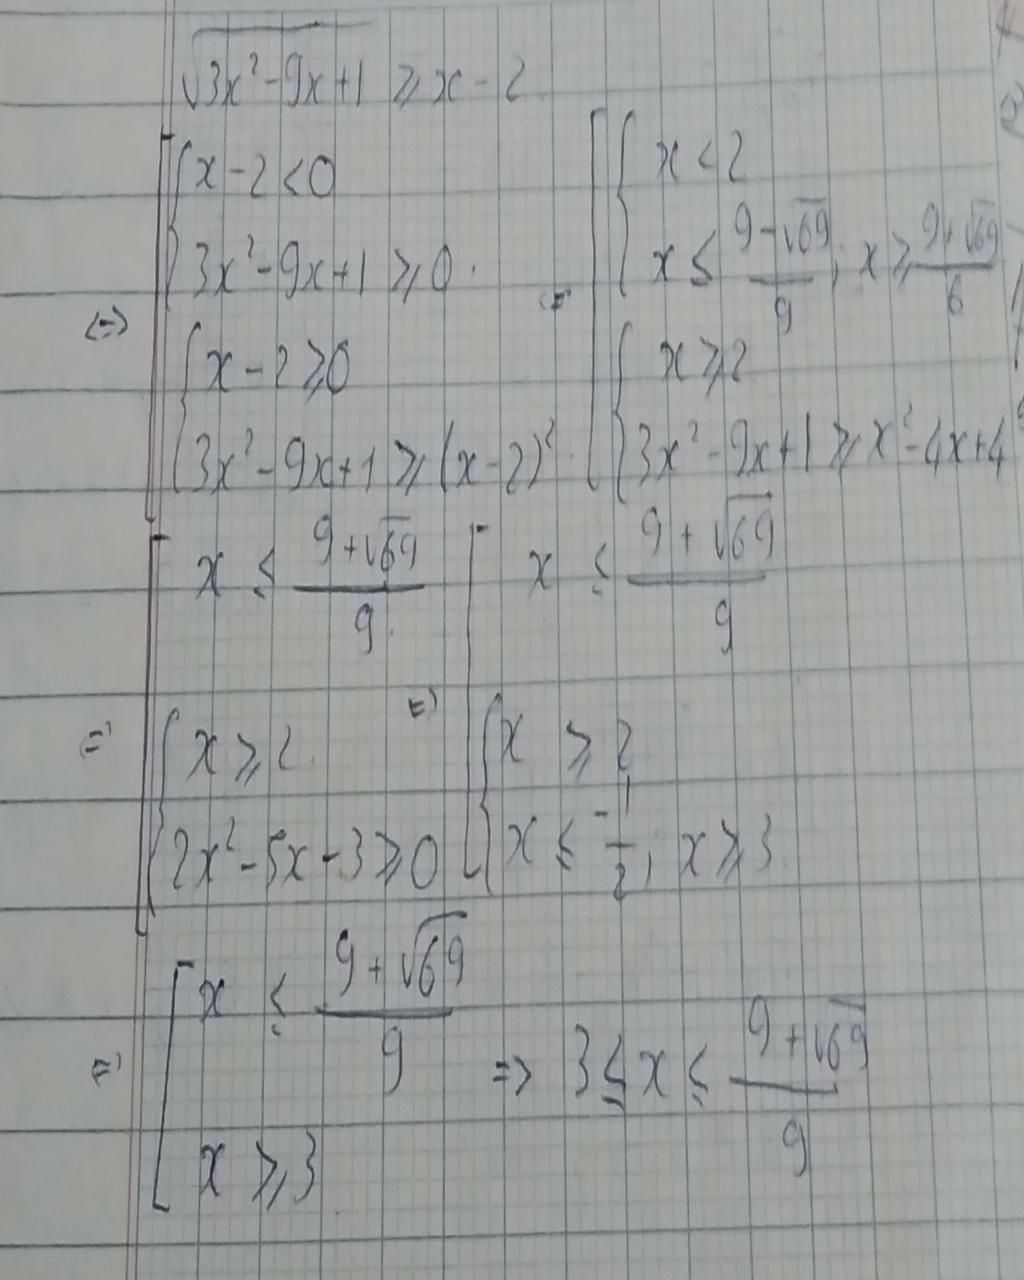 √(3x² - 9x + 1) ≥ x - 2
⇔ [ { x - 2 < 0
{ 3x² - 9x + 1 ≥ 0
{ x - 2 ≥ 0
{ 3x² - 9x + 1 ≥ (x - 2)²
⇔ [ { x < 2
{ x ≤ (9 - √69)/9; x ≥ (9 + √69)/6
{ x ≥ 2
{ 3x² - 9x + 1 ≥ x² - 4x + 4
⇒ [ x ≤ (9 + √69)/9
{ x ≥ 2
{ 2x² - 5x - 3 ≥ 0
⇒ [ x ≤ (9 + √69)/9
{ x ≥ 2
{ x ≤ -1/2, x ≥ 3
⇒ [ x ≤ (9 + √69)/9
x ≥ 3
⇒ 3 ≤ x ≤ (9 + √69)/9